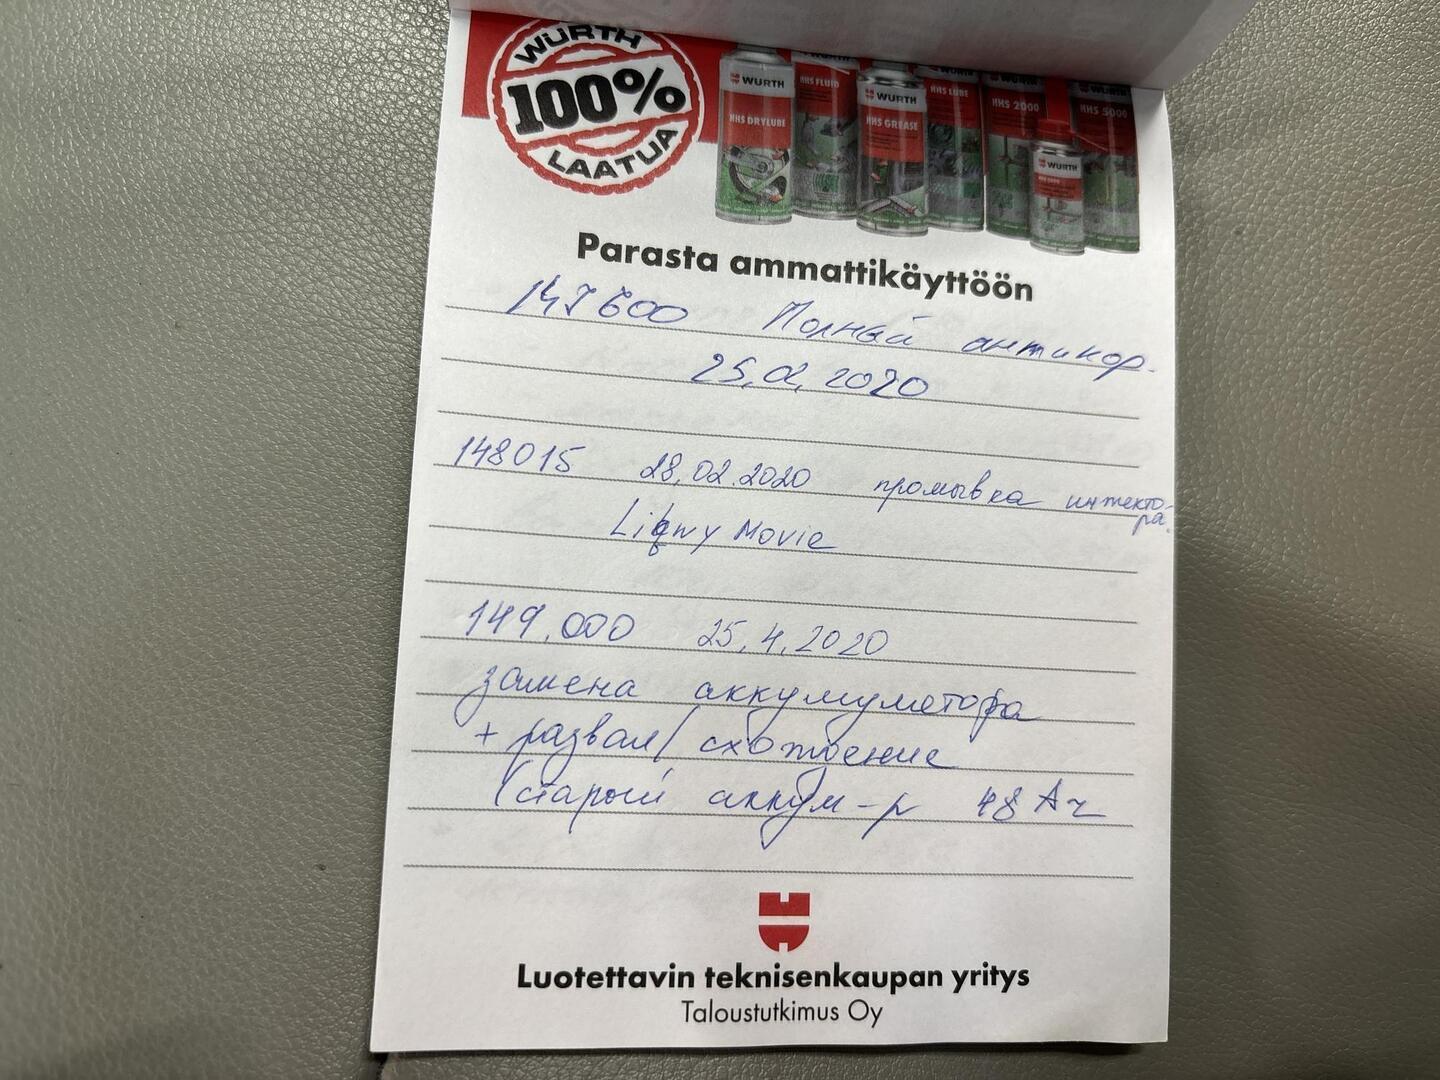 WÜRTH
100%
LAATUA
WURTH
HHS DRYLUBE
WURTH
HHS FLUID
WURTH
HHS GREASE
WURTH
HHS LUBE
HHS 2000
WURTH
HHS 5000
Parasta ammattikäyttöön
147600 Полный антикор.
25.02.2020
148015 28.02.2020 промывка инжекто-
ра.
Liqwy Movie
149.000 25.4.2020
замена аккумулятора
+ развал/схождение
(старый аккум-р 48 Ач
Luotettavin teknisenkaupan yritys
Taloustutkimus Oy